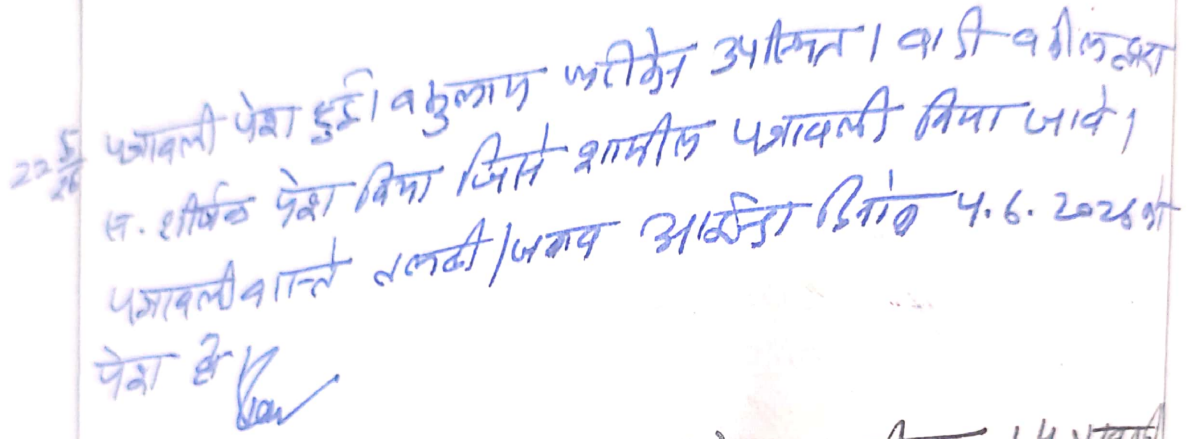 22/5/26 पत्रावली पेश हुई। वकुलाय फरीकेन उपस्थित। वादी वकील द्वारा
स. शीर्षक पेश किया जिसे शामील पत्रावली किया जावे।
पत्रावली वास्ते तलबी/जवाब आईन्दा दिनांक 4.6.2026 को
पेश हो